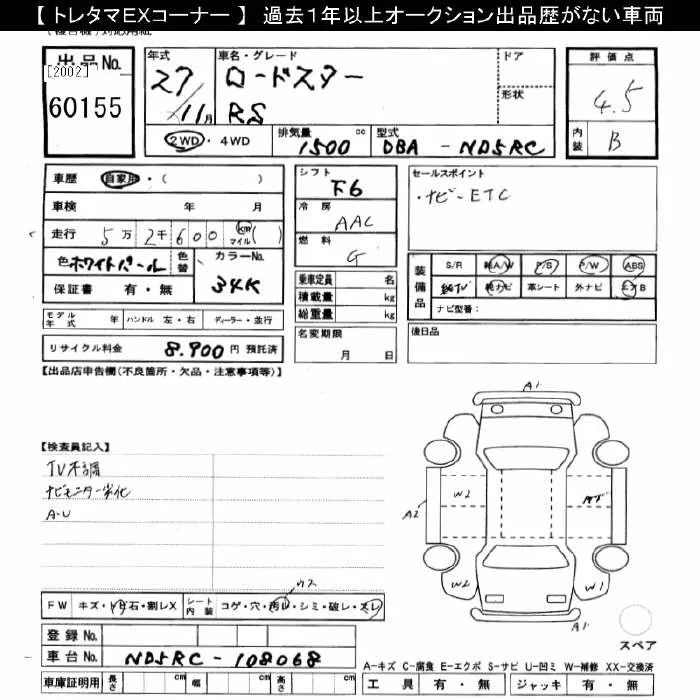 【 トレタマＥＸコーナー 】 過去１年以上オークション出品歴がない車両
出品No.
[2002]
60155
年式 27/11月
車名・グレード
ロードスター
RS
ドア
形状
評価点
4.5
内装 B
2WD ・ 4WD
排気量 1500 cc
型式 DBA - ND5RC
車歴 自家用 ・ ( )
車検 年 月
走行 5万2千600 km マイル ( )
色 ホワイトパール 色替
カラーNo. 34K
保証書 有・無
モデル年式 年 ハンドル 左・右 ディーラー・並行
リサイクル料金 8.900 円 預託済
シフト F6
冷房 AAC
燃料 G
乗車定員 名
積載量 kg
総重量 kg
名変期限 月 日
セールスポイント
・ナビ-ETC
装備品
S/R 純A/W P/S P/W ABS
純TV 純ナビ 革シート 外ナビ エアB
ナビ型番：
後日品
【出品店申告欄(不良箇所・欠品・注意事項等)】
【検査員記入】
TV不調
ナビモニター劣化
A-U
A1
A2
W2
W2
W1
A1
スペア
FW キズ・ 石・割レX
シート内装 コゲ・穴・汚レ・シミ・破レ・スレ
登録No.
車台No. ND5RC - 108068
車庫証明用 長さ cm 幅 cm 高さ cm
A-キズ C-腐食 E-エクボ S-サビ U-凹ミ W-補修 XX-交換済
工具 有・無 ジャッキ 有・無